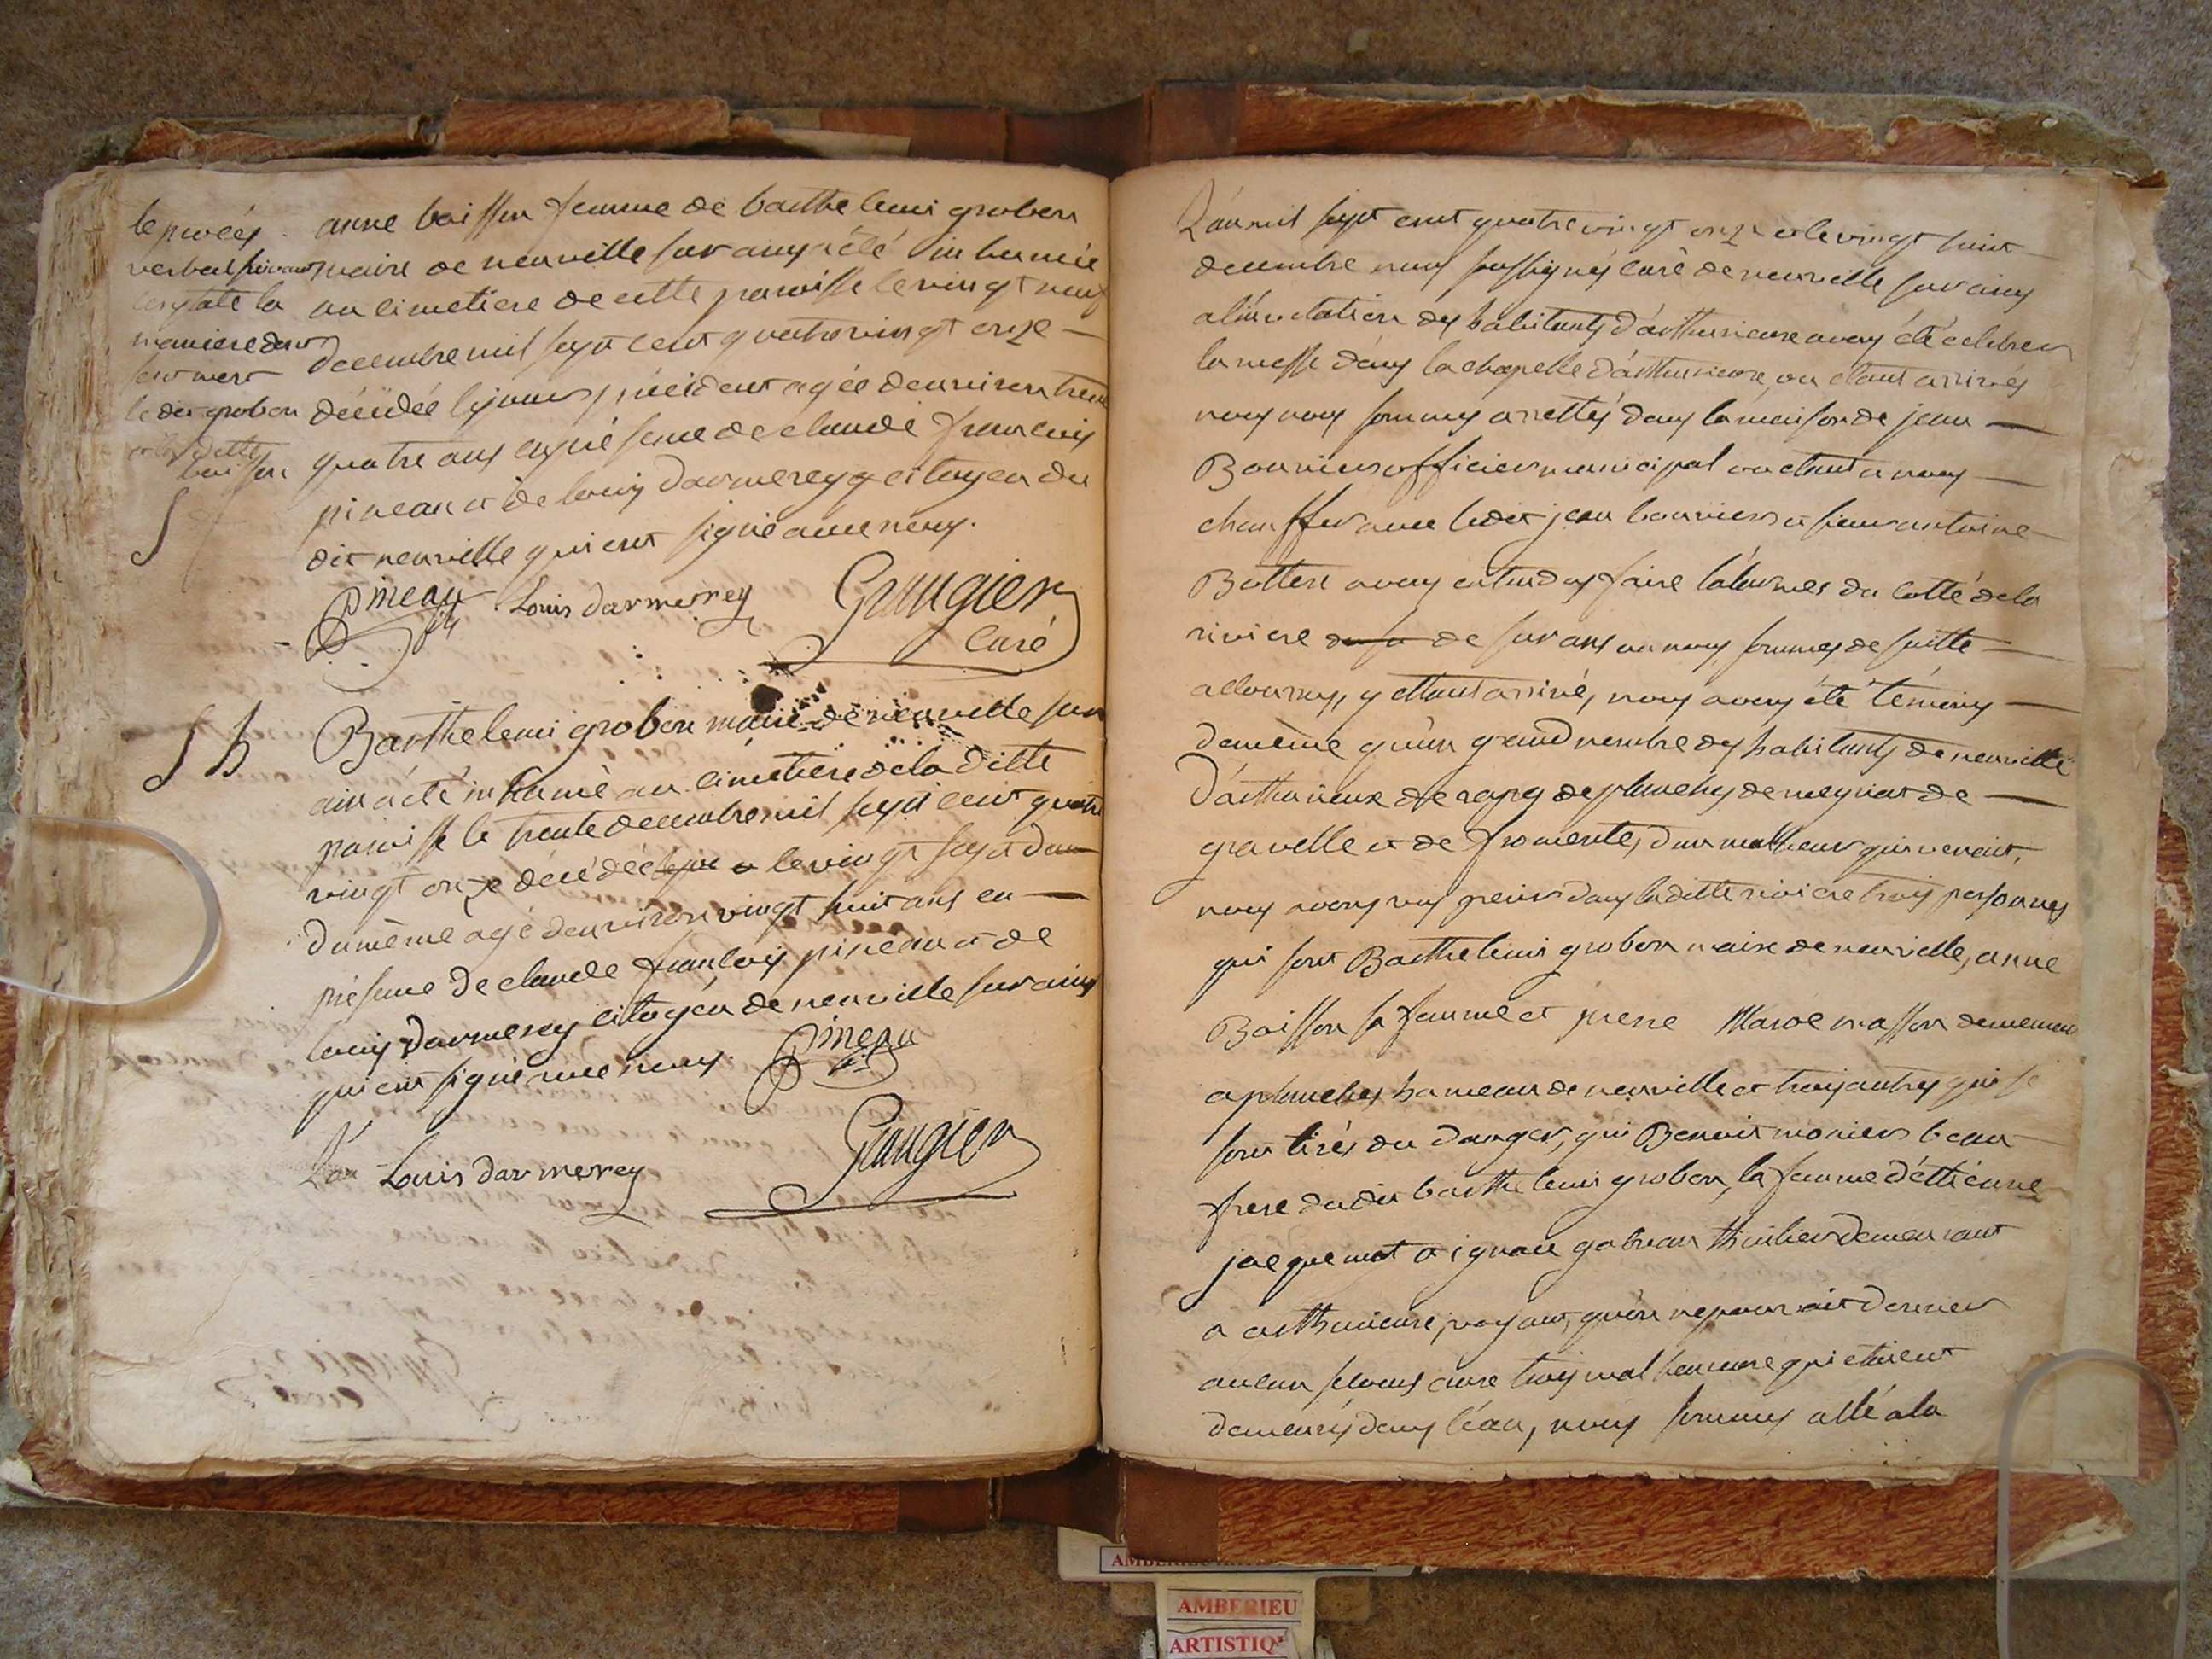 le procés
verbal suivant
constate la
maniere dont
sont mort
le dit grobon
et la ditte
boisson
anne boisson femme de barthelemi grobon
maire de neuville sur ainy a été inhumée
au cimetiere de cette paroisse le vingt neuf
decembre mil sept cent quatrevingt onze
décédée le jour précédent agée denviron trente
quatre ans en présence de claude françois
pineau et de louis darmerey citoyen du
dit neuville qui ont signé avec nous.
Pineau Louis darmerey Grangier
Curé
S h
Barthelemi grobon maire de neuville sur
ain a été inhumé au cimetiere de la ditte
paroisse le trente decembre mil sept cent quatre
vingt onze décédé le vingt sept du
du même agé denviron vingt huit ans en
présence de claude françois pineau et de
louis darmerey citoyen de neuville sur ainy
qui ont signé avec nous. Pineau
L'an Louis darmerey Grangier
L'an mil sept cent quatrevingt onze et le vingt huit
decembre nous soussigné curé de neuville sur ainy
a l'invitation des habitants d'arthurieux avons été celebrer
la messe dans la chapelle d'arthurieux, ou etant arrivés
nous nous sommes arrettés dans la maison de jean
Bouvier officier municipal ou etant a nous
chauffer avec ledit jean bouvier et sieur antoine
Bottex avons entendus faire l'alarme du cotté de la
riviere de suran ou nous sommes de suitte
accourus, y ettant arrivé, nous avons été témoins
de même qu'un grand nombre des habitants de neuville
d'arthurieux de rapes de planches de meyriat de
gravelle et de fromente, d'un malheur qui venait,
nous avons vus perir dans la ditte riviere trois personnes
qui sont Barthelemi grobon maire de neuville, anne
Boisson sa femme et pierre Maroe masson demeurant
a planches hameau de neuville et trois autres qui se
sont tirés du danger, qui Benoit monier beau
frere du dit barthelemi grobon, la femme d'ettienne
jacquemet et ignace gabrian thuilier demeurant
a arthurieux, voyant, qu'on ne pouvait donner
aucun secours aux trois malheureux qui etoient
demeurés dans l'eau, nous sommes allé a la
AMBERIEU
ARTISTIQ